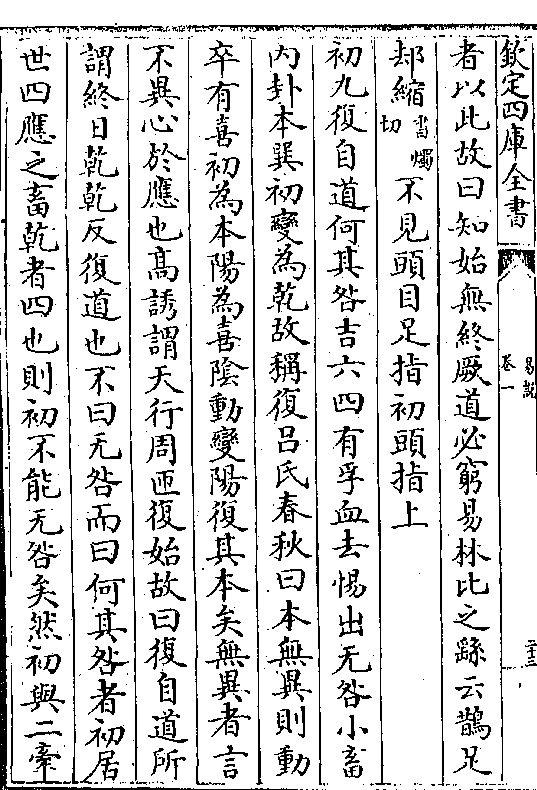 欽定四庫全書
易說
卷一
二十三
者以此故曰知始無終厥道必窮易林比之繇云鵲足
却縮書燭切不見頭目足指初頭指上
初九復自道何其咎吉六四有孚血去惕出无咎小畜
内卦本巽初變為乾故稱復吕氏春秋曰本無異則動
卒有喜初為本陽為喜陰動變陽復其本矣無異者言
不異心於應也髙誘謂天行周匝復始故曰復自道所
謂終日乾乾反復道也不曰无咎而曰何其咎者初居
世四應之畜乾者四也則初不能无咎矣然初與二牽